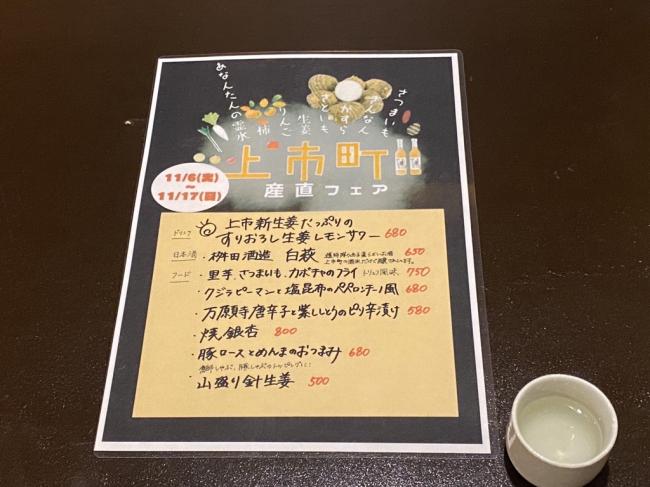 さつまいも
ぎんなん
かずら
さといも
生姜
りんご
柿
あなんたんの霊水
上市町
産直フェア
11/6(実)
~
11/17(日)
ドリンク 上市新生姜たっぷりの
すりおろし生姜レモンサワー 680
日本酒 ・桝田酒造 白萩 650
フード ・里芋、さつまいも、カボチャのフライ トリュフ風味 750
・クジラピーマンと塩昆布のペペロンチーノ風 680
・万願寺唐辛子と紫しいとりのピリ辛漬け 580
・焼銀杏 800
・豚ロースとめんまのおつまみ 680
鰤しゃぶ、豚しゃぶのトッピングに!
・山盛り針生姜 500